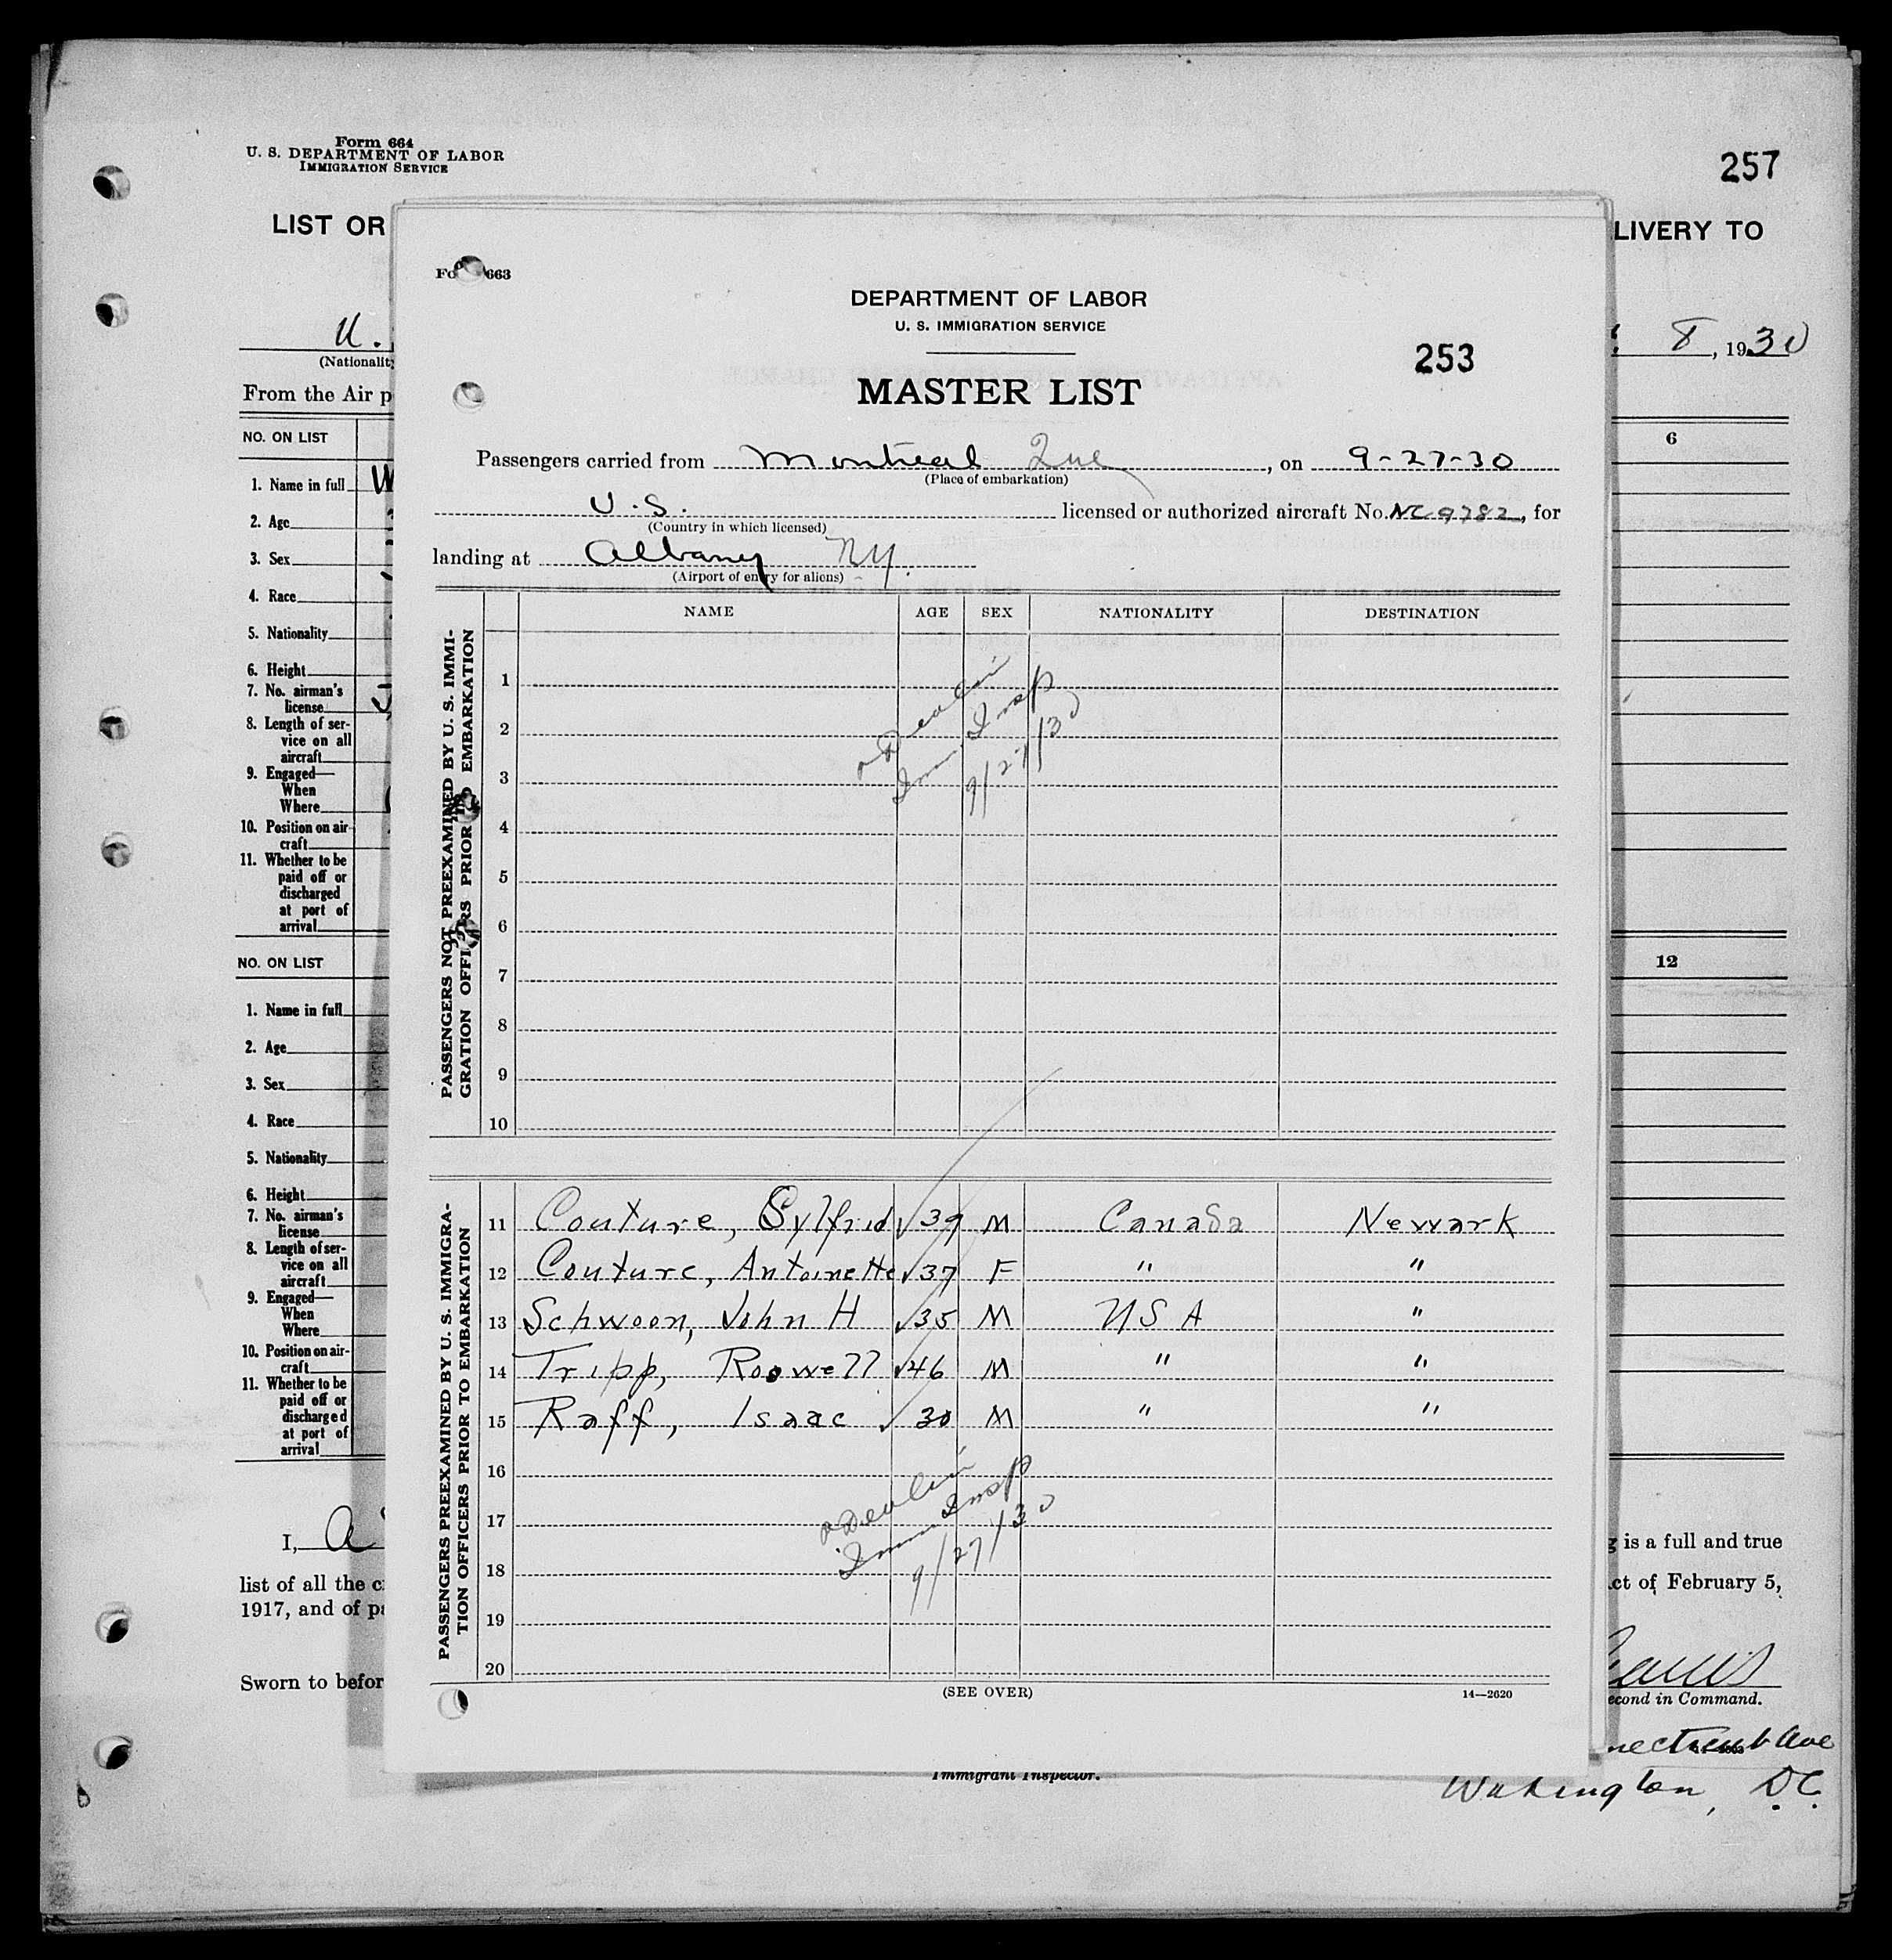 Form 664
U. S. DEPARTMENT OF LABOR
IMMIGRATION SERVICE
257
LIST OR
LIVERY TO
U.
(Nationalit
8, 1930
From the Air p
NO. ON LIST
6
1. Name in full
2. Age
3. Sex
4. Race
5. Nationality
6. Height
7. No. airman's
license
8. Length of ser-
vice on all
aircraft
9. Engaged—
When
Where
10. Position on air-
craft
11. Whether to be
paid off or
discharged
at port of
arrival
NO. ON LIST
12
1. Name in full
2. Age
3. Sex
4. Race
5. Nationality
6. Height
7. No. airman's
license
8. Length of ser-
vice on all
aircraft
9. Engaged—
When
Where
10. Position on air-
craft
11. Whether to be
paid off or
discharged
at port of
arrival
I, a
g is a full and true
list of all the c
ct of February 5,
1917, and of pa
Sworn to befor
econd in Command.
necticut Ave
Immigrant Inspector.
Washington, D.C.
Fo 663
DEPARTMENT OF LABOR
U. S. IMMIGRATION SERVICE
253
MASTER LIST
Passengers carried from Montreal Que, on 9-27-30
(Place of embarkation)
U.S. licensed or authorized aircraft No. NC9782, for
(Country in which licensed)
landing at Albany NY.
(Airport of entry for aliens)
NAME AGE SEX NATIONALITY DESTINATION
PASSENGERS NOT PREEXAMINED BY U. S. IMMI-
GRATION OFFICERS PRIOR TO EMBARKATION
1
2
3
4
5
6
7
8
9
10
Devlin
Imm. Insp
9/27/30
PASSENGERS PREEXAMINED BY U. S. IMMIGRA-
TION OFFICERS PRIOR TO EMBARKATION
11 Couture, Sylfrid √39 M Canada Newark
12 Couture, Antoinette √37 F " "
13 Schwoon, John H √35 M USA "
14 Tripp, Roswell √46 M " "
15 Raff, Isaac √ 30 M " "
16
17
18
19
20
Devlin
Imm Insp
9/27/30
(SEE OVER)
14—2620